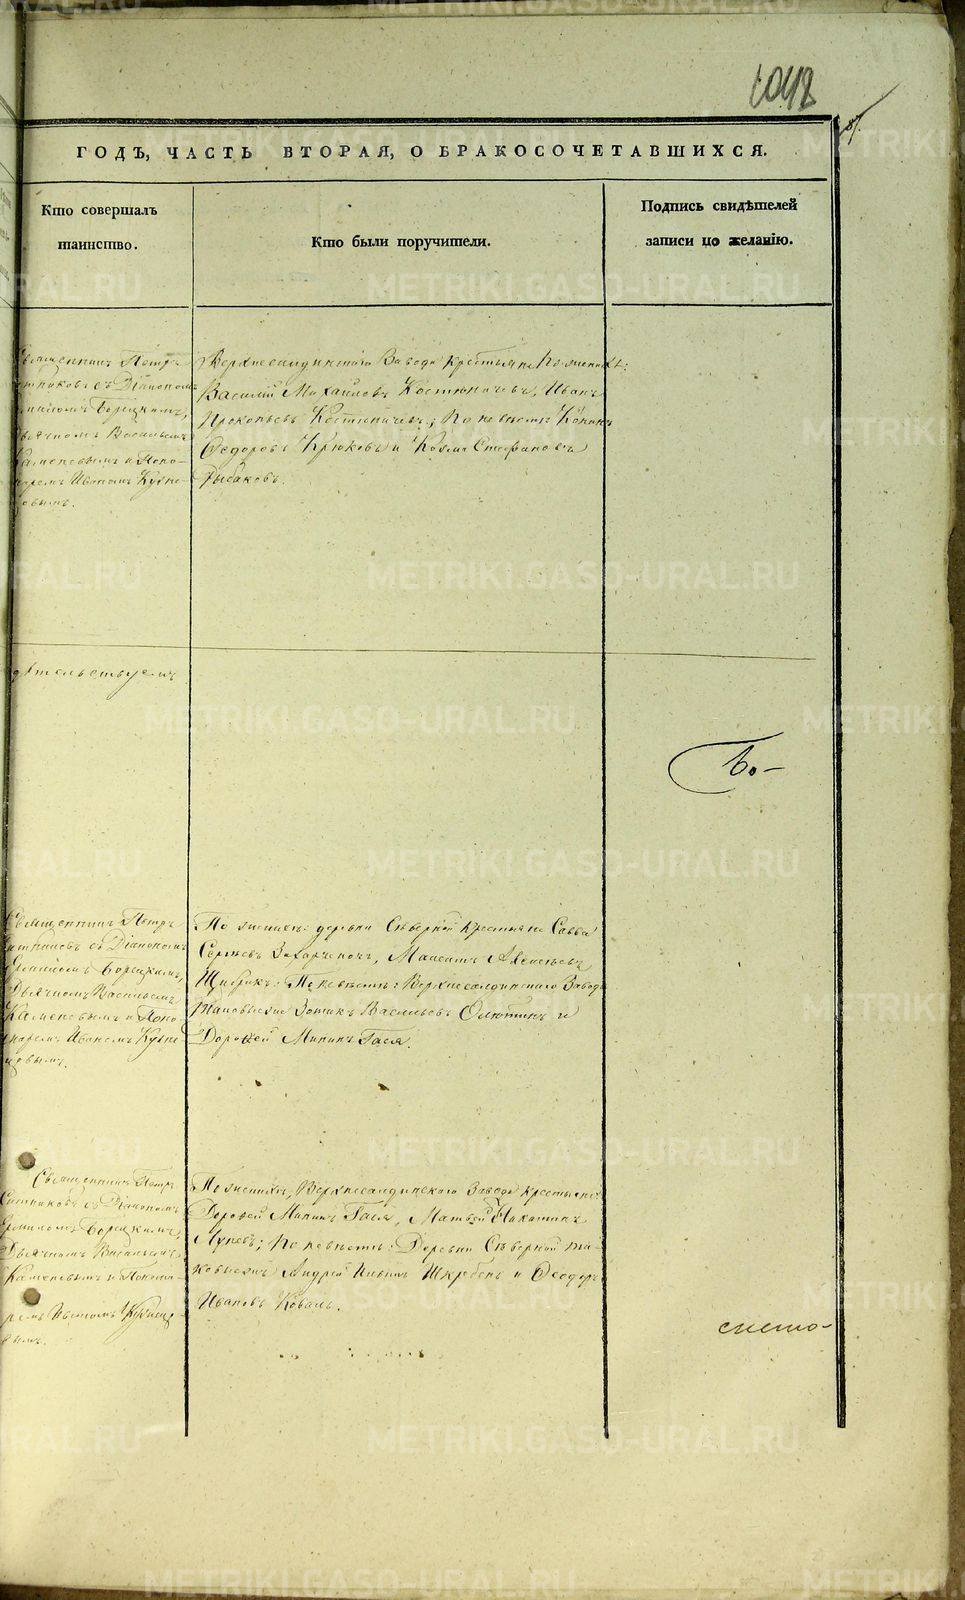 1018
ГОДЪ, ЧАСТЬ ВТОРАЯ, О БРАКОСОЧЕТАВШИХСЯ.
Кто совершалъ
таинство.
Кто были поручители.
Подпись свидѣтелей
записи по желанію.
Священникъ Петръ
съ Діакономъ
Борецкимъ,
Дьячкомъ Васильемъ
Каменевымъ и Поно-
маремъ Иваномъ Кузне-
цовымъ.
Верхнесалдинскаго Завода Крестьяне По женихѣ:
Василій Михайловъ Костюничевъ, Иванъ
Прокопьевъ Костюничевъ; По невѣстѣ
Ѳедоровъ Крюковъ и Козма Стефановъ
Рыбаковъ.
дѣтельствуемъ
Во-
Священникъ Петръ
Ситниковъ съ Діакономъ
Ермиломъ Борецкимъ,
Дьячкомъ Васильемъ
Каменевымъ и Поно-
маремъ Иваномъ Кузне
цовымъ.
По женихѣ: деревни Сѣверной Крестьяне Савва
Сергѣевъ Захарченокъ,
По невѣстѣ: Верхнесалдинскаго Завода
Таковыеже Зотикъ Васильевъ и
Дороѳей Мининъ Гасля.
Священникъ Петръ
Ситниковъ съ Діакономъ
Ермиломъ Борецкимъ,
Дьячкомъ Васильемъ
Каменевымъ и Понома-
ремъ Иваномъ Кузнецо-
вымъ.
По женихѣ, Верхнесалдинскаго Завода Крестьяне
Дороѳей Мининъ Гасля, Матвей
По невѣстѣ: Деревни Сѣверной та-
ковыежъ Андрей Шкребень и Ѳеодоръ
Ивановъ Коваль.
систо-
METRIKI.GASO-URAL.RU